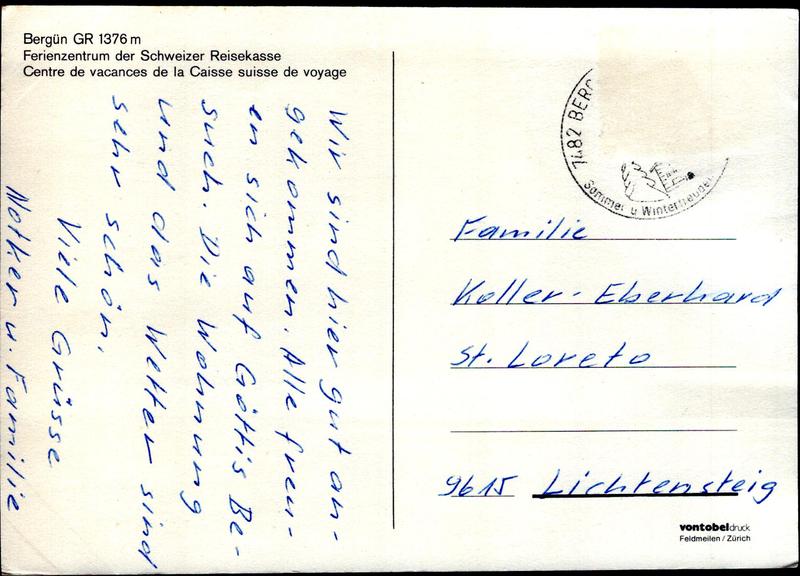 Bergün GR 1376 m
Ferienzentrum der Schweizer Reisekasse
Centre de vacances de la Caisse suisse de voyage
Wir sind hier gut an-
gekommen. Alle freu-
en sich auf Göttis Be-
such. Die Wohnung
und das Wetter sind
sehr schön.
Viele Grüsse
Notker u. Familie
7482 BERG
Sommer u Winter
Familie
Koller-Eberhard
St. Loreto
9615 Lichtensteig
vontobeldruck
Feldmeilen / Zürich